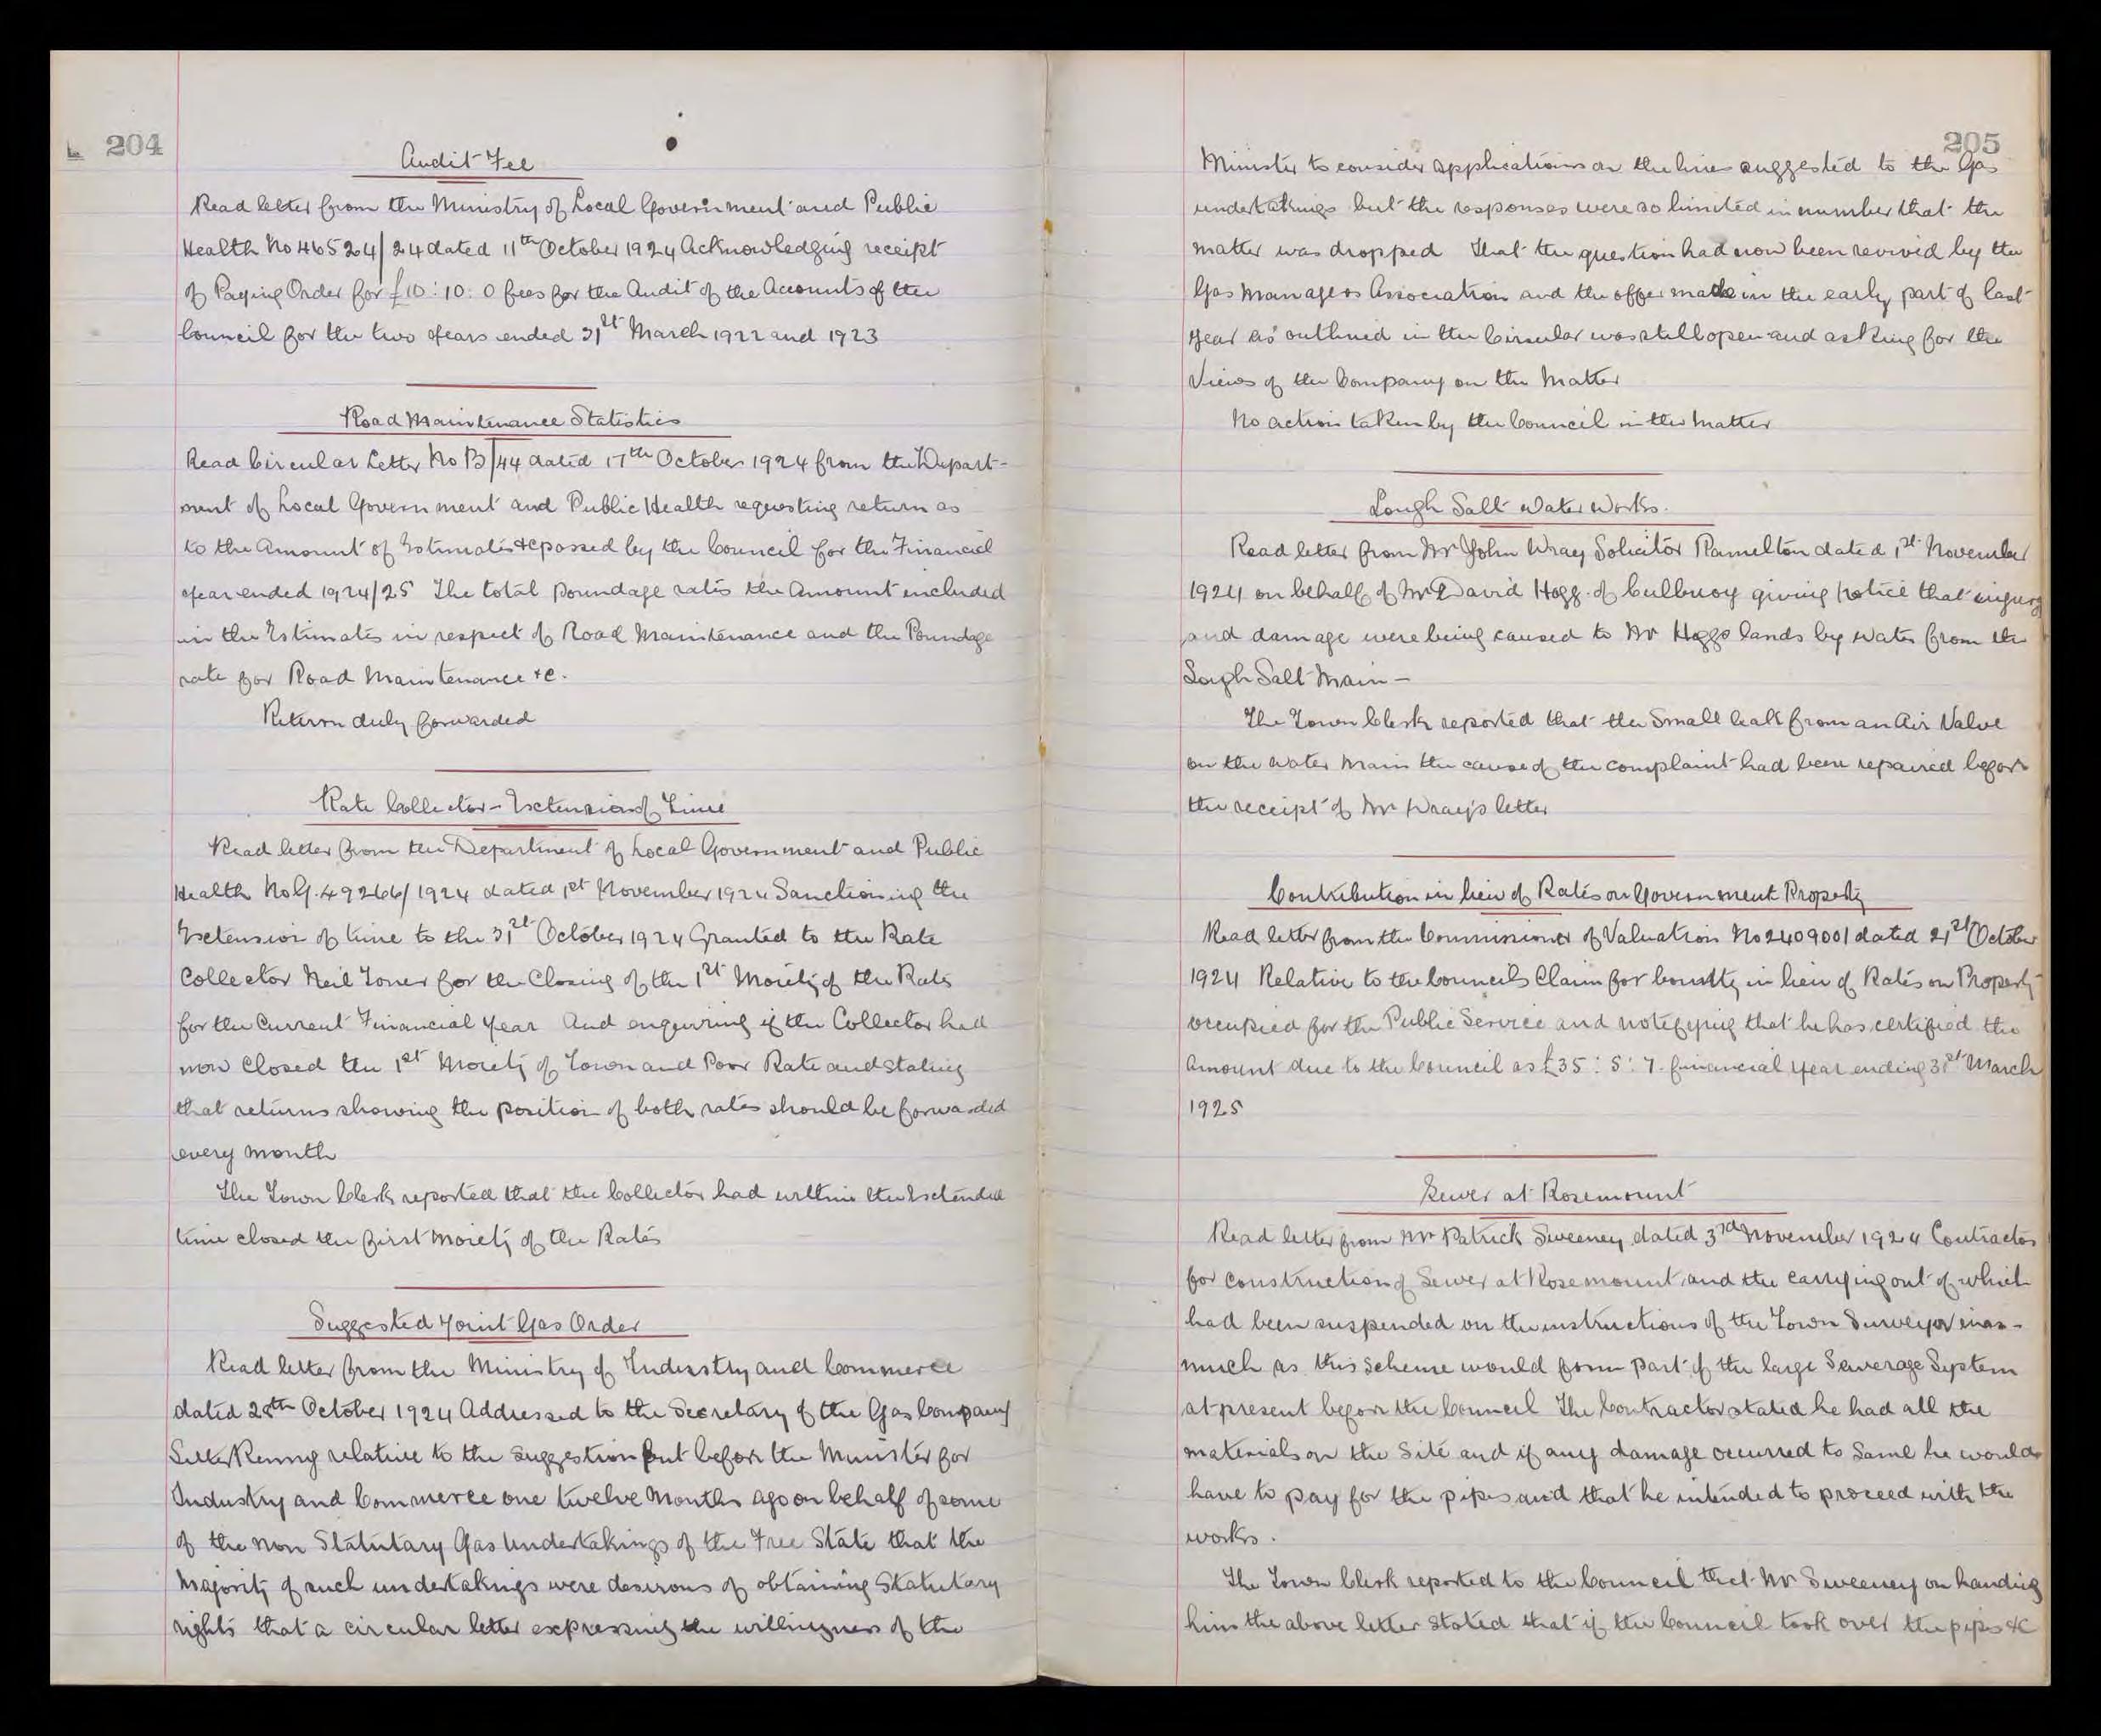 204
Audit Fee
Read letter from the Ministry of Local Government and Public
Health No 46524/24 dated 11th October 1924 Acknowledging receipt
of Paying Order for £10:10:0 fees for the Audit of the Accounts of the
Council for the two years ended 31st March 1922 and 1923
Road Maintenance Statistics
Read Circular Letter No B/44 dated 17th October 1924 from the Depart-
ment of Local Government and Public Health requesting return as
to the Amount of Estimates &c passed by the Council for the Financial
year ended 1924/25 The total poundage rates the Amount included
in the Estimates in respect of Road Maintenance and the Poundage
rate for Road Maintenance &c.
Return duly forwarded
Rate Collector - Extension of Time
Read letter from the Department of Local Government and Public
Health No G. 49266/1924 dated 1st November 1924 Sanctioning the
Extension of time to the 31st October 1924 Granted to the Rate
Collector Neil Toner for the Closing of the 1st Moiety of the Rates
for the Current Financial Year And enquiring if the Collector had
now Closed the 1st Moiety of Town and Poor Rate and stating
that returns showing the position of both rates should be forwarded
every month
The Town Clerk reported that the Collector had within the Extended
time closed the first Moiety of the Rates
Suggested Joint Gas Order
Read letter from the Ministry of Industry and Commerce
dated 28th October 1924 Addressed to the Secretary of the Gas Company
Letterkenny relative to the suggestion put before the Minister for
Industry and Commerce one twelve Months ago on behalf of some
of the non Statutary Gas Undertakings of the Free State that the
Majority of such undertakings were desirous of obtaining Statutary
rights that a circular letter expressing the willingness of the
205
Minister to consider applications on the lines suggested to the Gas
undertakings but the responses were so limited in number that the
matter was dropped That the question had now been revived by the
Gas Managers Association and the offer made in the early part of last
year as outlined in the Circular was still open and asking for the
Views of the Company on the Matter
No action taken by the Council in the Matter
Lough Salt Water Works.
Read letter from Mr John Wray Solicitor Ramelton dated 1st November
1924 on behalf of Mr David Hogg of Cullbuoy giving notice that injury
and damage were being caused to Mr Hoggs lands by water from the
Lough Salt Main -
The Town Clerk reported that the Small leak from an Air Valve
on the Water Main the cause of the complaint had been repaired before
the receipt of Mr Wray's letter
Contribution in lieu of Rates on Government Property
Read letter from the Commissioner of Valuation No 2409001 dated 21st October
1924 Relative to the Councils Claim for bounty in lieu of Rates on Property
occupied for the Public Service and notifying that he has certified the
Amount due to the Council as £35:5:7. financial year ending 31st March
1925
Sewer at Rosemount
Read letter from Mr Patrick Sweeney dated 3rd November 1924 Contractor
for construction of Sewer at Rosemount and the carrying out of which
had been suspended on the instructions of the Town Surveyor inas-
much as this scheme would form part of the large Sewerage System
at present before the Council The Contractor stated he had all the
materials on the Site and if any damage occurred to Same he would
have to pay for the pipes and that he intended to proceed with the
works.
The Town Clerk reported to the Council that Mr Sweeney on handing
him the above letter stated that if the Council took over the pipes &c